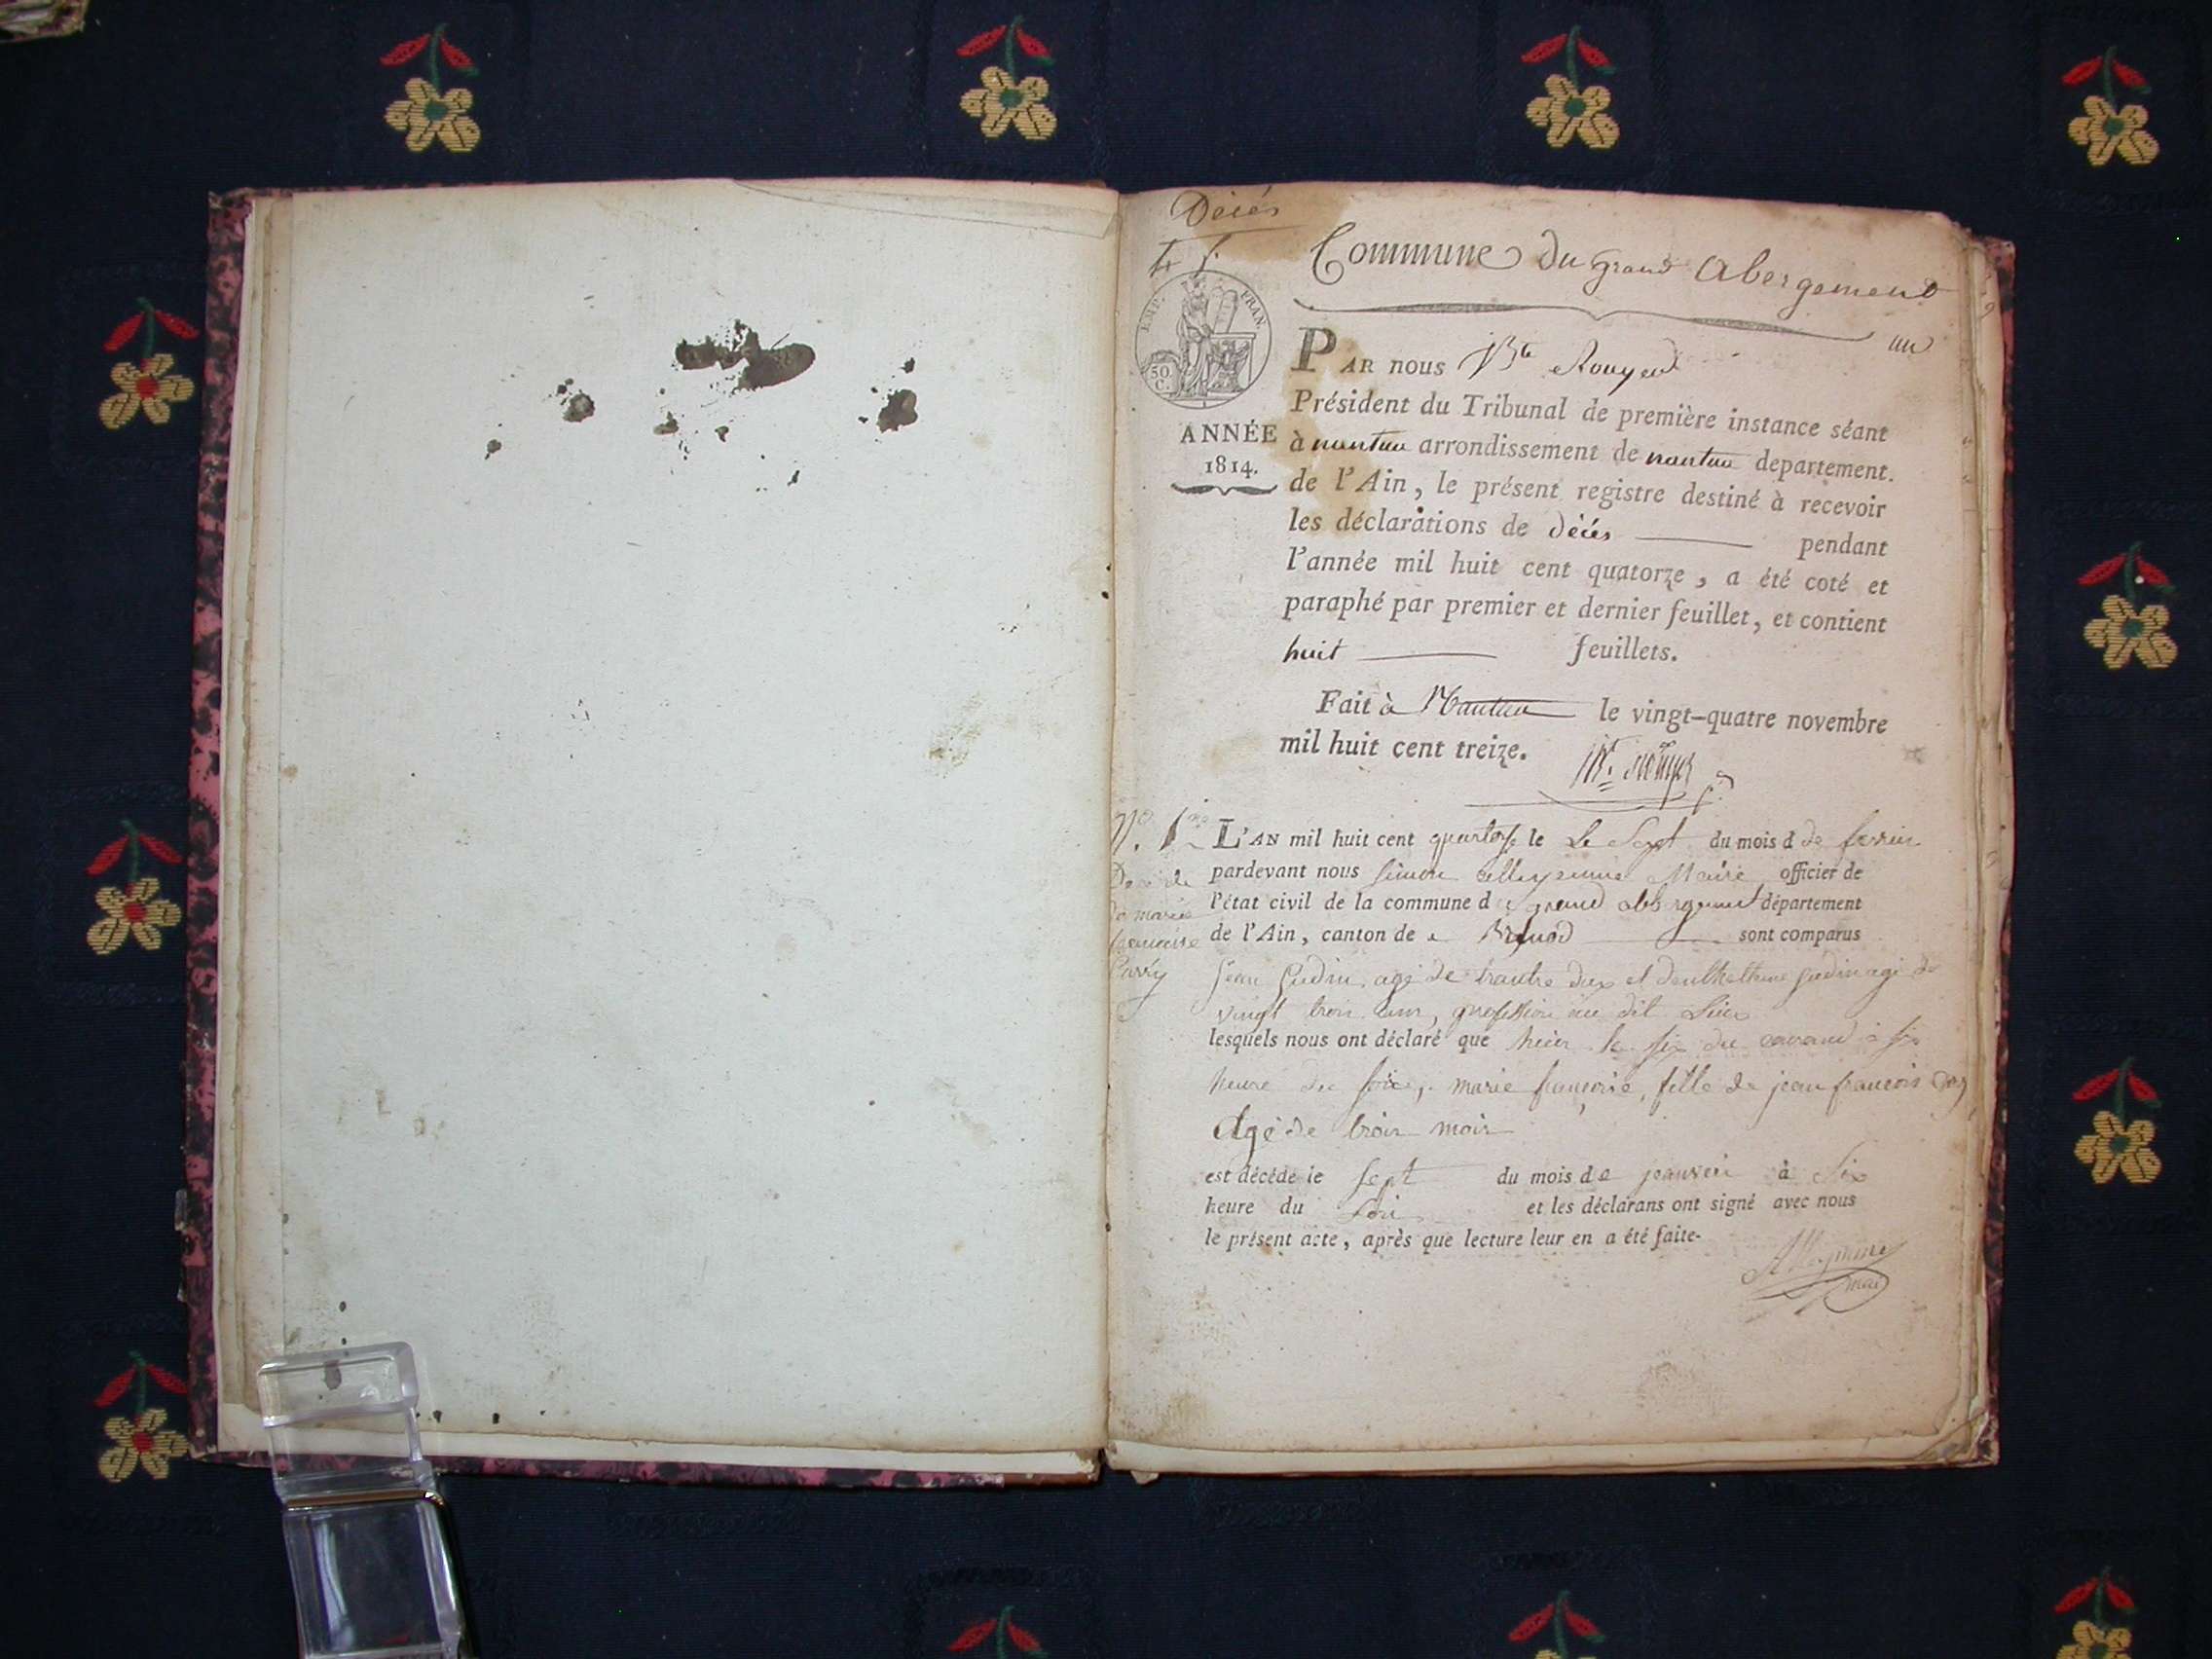 Décés
Commune du grand abergement
EMP. FRAN.
50.
C.
un
PAR nous
Président du Tribunal de première instance séant
ANNÉE
1814.
à nantua arrondissement de nantua departement.
de l'Ain, le présent registre destiné à recevoir
les déclarations de décés pendant
l'année mil huit cent quatorze, a été coté et
paraphé par premier et dernier feuillet, et contient
huit feuillets.
Fait à Nantua le vingt-quatre novembre
mil huit cent treize.
L'AN mil huit cent le Le Sept du mois d de
pardevant nous Simon Maire officier de
l'état civil de la commune d grand département
de l'Ain, canton de sont comparus
jean agé de et agé de
vingt trois ans, dit Lieu
lesquels nous ont déclaré que hier le six du à six
heure du marie françoise, fille de jean francois
Agé de trois mois
est décédé le sept du mois de à Six
heure du Soir et les déclarans ont signé avec nous
le présent acte, après que lecture leur en a été faite.